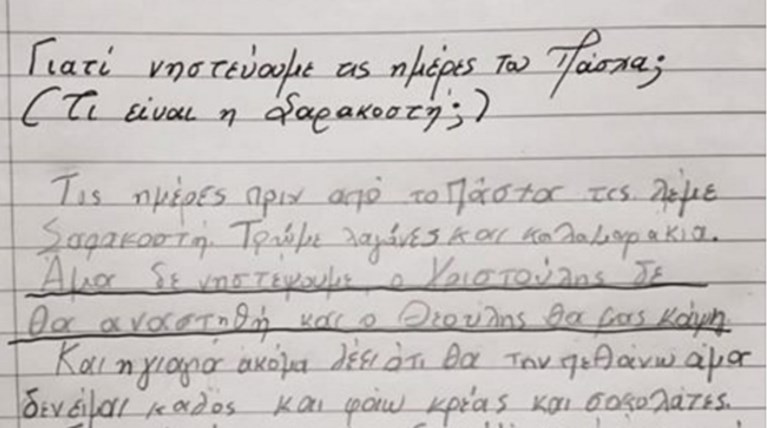 Γιατί νηστεύουμε τις ημέρες του Πάσχα;
(Τι είναι η Σαρακοστή;)
Τις ημέρες πριν από το Πάσχα τις λέμε
Σαρακοστή. Τρώμε λαγάνες και καλαμαρακια.
Άμα δε νηστέψουμε ο Χριστούλης δε
θα αναστηθή και ο Θεούλης θα μας κάψη
Και η γιαγιά ακόμα λέει ότι θα την πεθάνω άμα
δεν είμαι καλός και φάω κρέας και σοκολάτες.